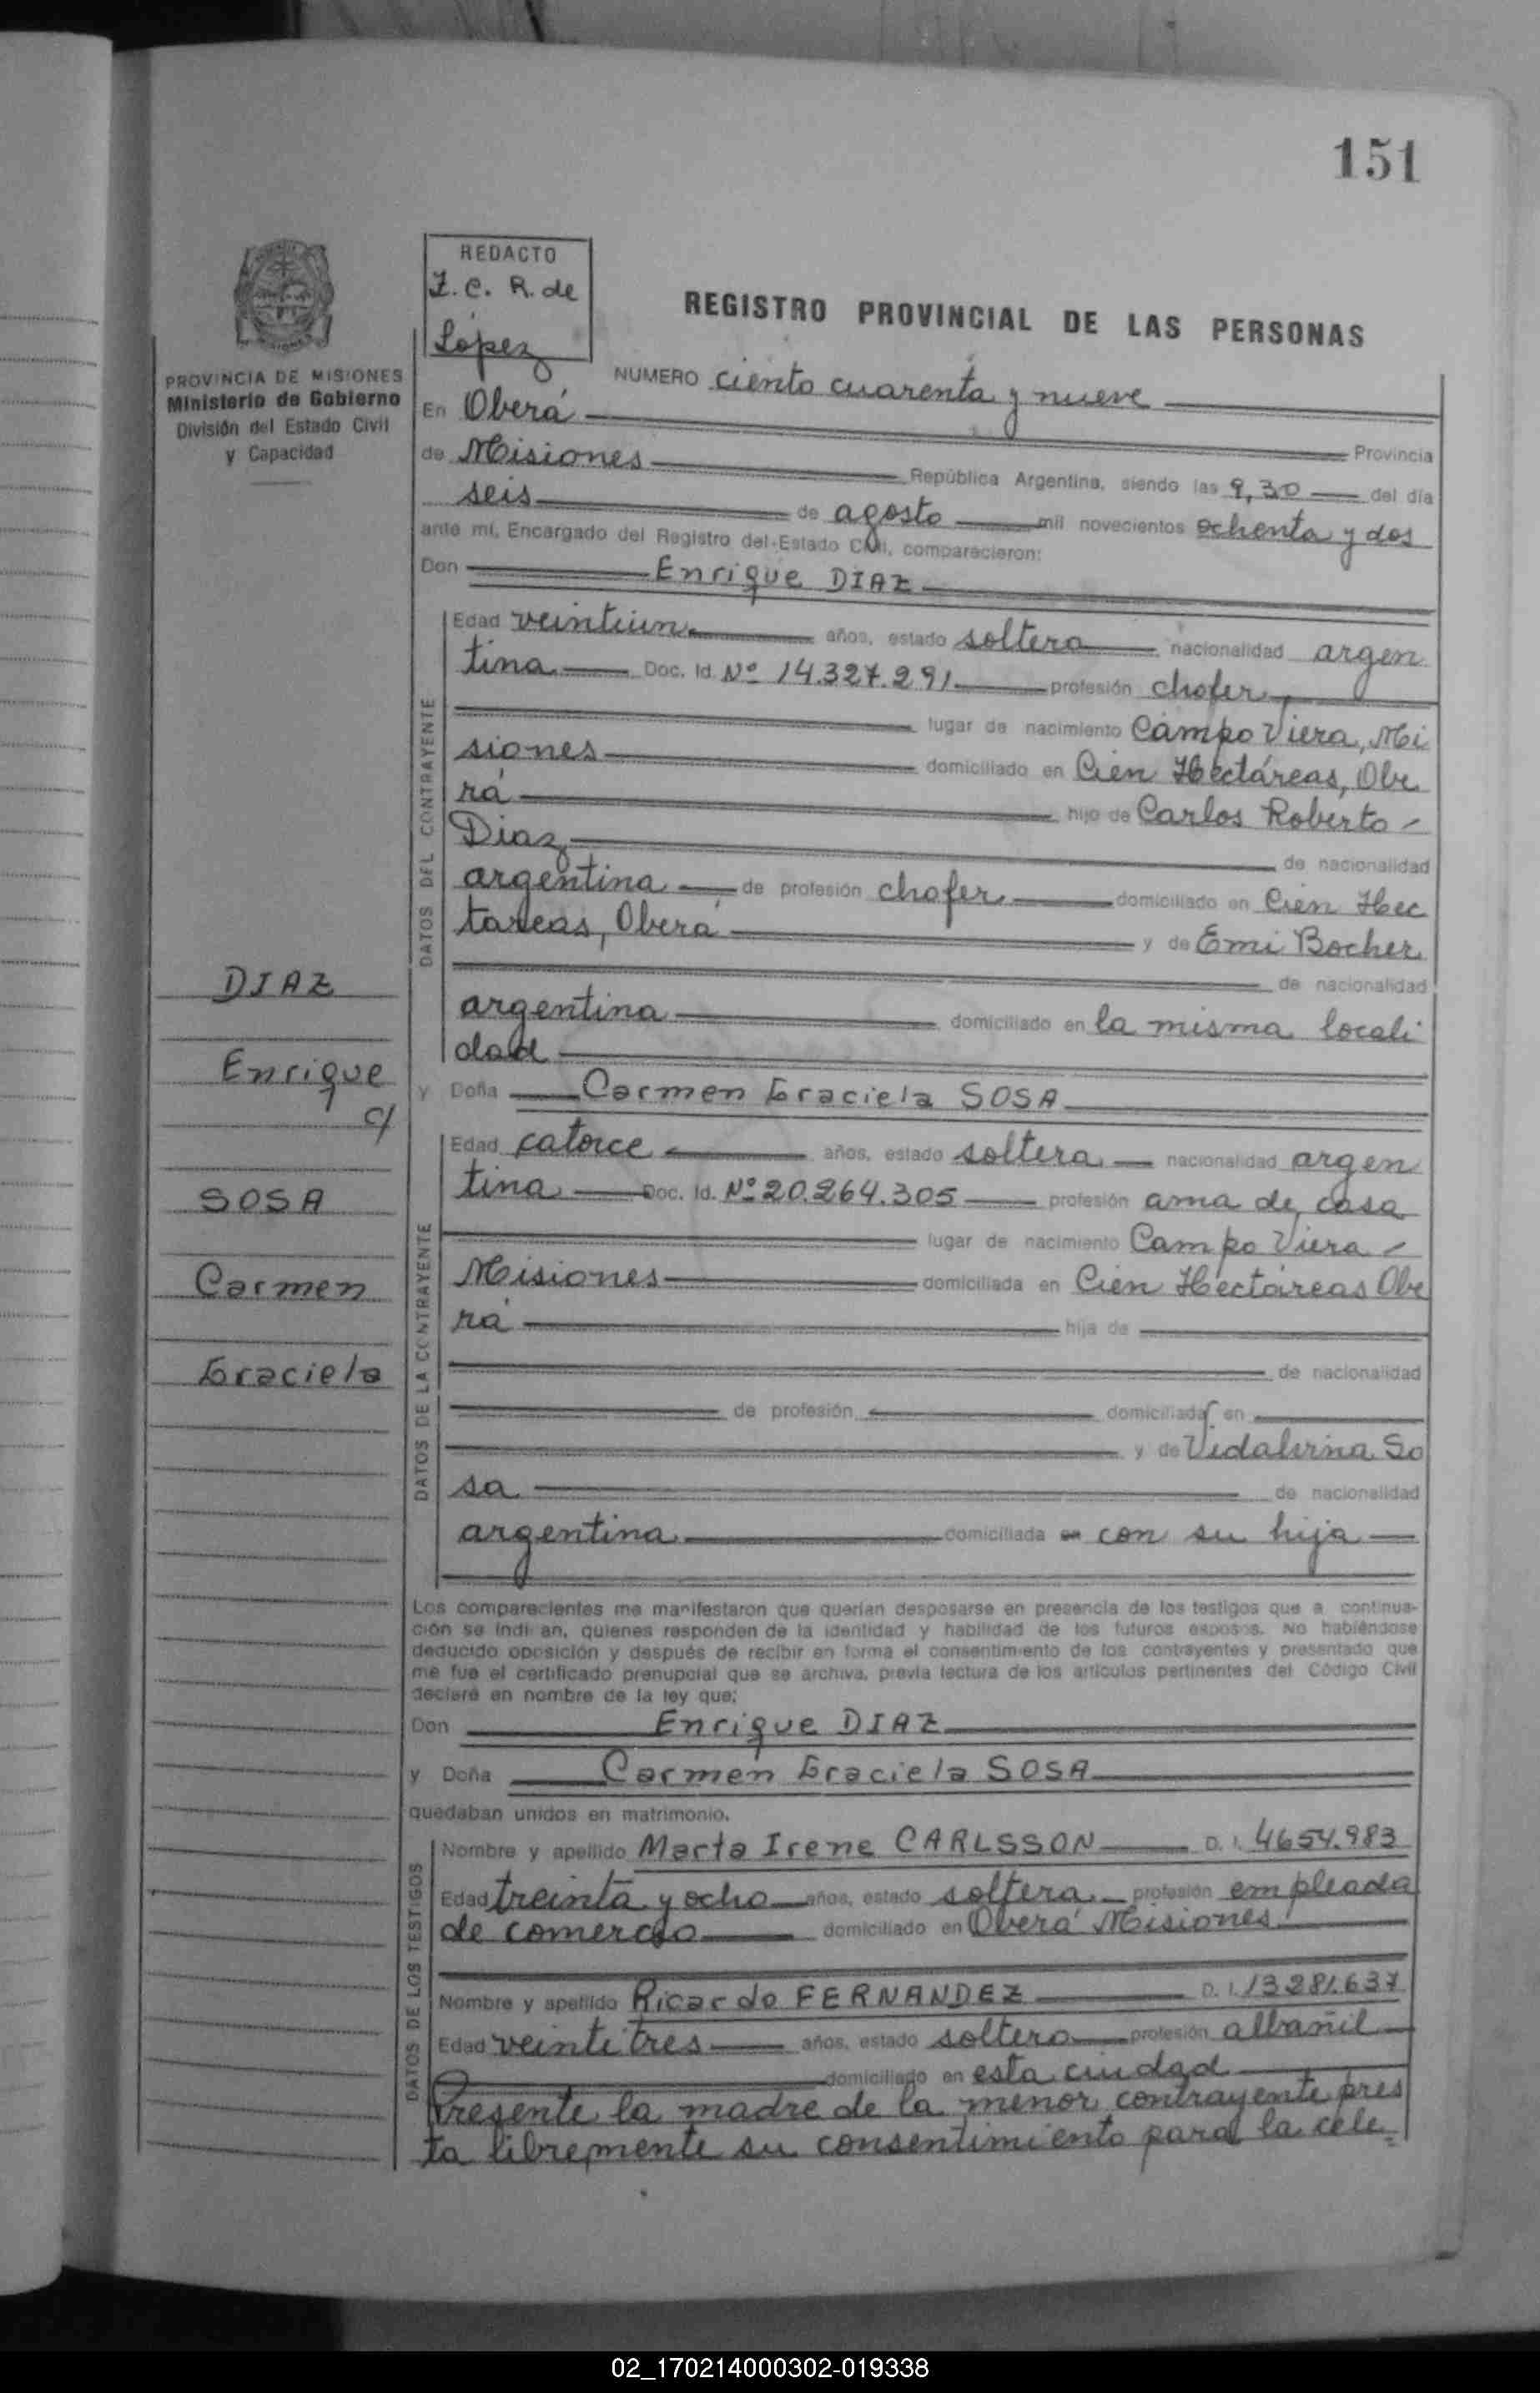 151
REDACTO
I. C. R. de
López
REGISTRO PROVINCIAL DE LAS PERSONAS
PROVINCIA DE MISIONES
Ministerio de Gobierno
División del Estado Civil
y Capacidad
NUMERO ciento cuarenta y nueve
En Oberá
Provincia
de Misiones República Argentina, siendo las 9,30 del día
seis de agosto mil novecientos ochenta y dos
ante mí, Encargado del Registro del Estado Civil, comparecieron:
Don Enrique DIAZ
DATOS DEL CONTRAYENTE
Edad veintiun años, estado soltero nacionalidad argen
tina Doc. Id. Nº 14.327.291 profesión chofer
lugar de nacimiento Campo Viera, Mi
siones domiciliado en Cien Hectáreas, Obe
rá hijo de Carlos Roberto
Diaz de nacionalidad
argentina de profesión chofer domiciliado en Cien Hec
tareas, Oberá y de Emi Bocher
de nacionalidad
argentina domiciliado en la misma locali
dad
y Doña Carmen Graciela SOSA
DIAZ
Enrique
c/
SOSA
Carmen
Graciela
DATOS DE LA CONTRAYENTE
Edad catorce años, estado soltera nacionalidad argen
tina Doc. Id. Nº 20.264.305 profesión ama de casa
lugar de nacimiento Campo Viera
Misiones domiciliada en Cien Hectáreas Obe
rá hija de
de nacionalidad
de profesión domiciliada en
y de Vidalvina So
sa de nacionalidad
argentina domiciliada en con su hija
Los comparecientes me manifestaron que querían desposarse en presencia de los testigos que a continua-
ción se indi an, quienes responden de la identidad y habilidad de los futuros esposos. No habiéndose
deducido oposición y después de recibir en forma el consentimiento de los contrayentes y presentado que
me fue el certificado prenupcial que se archiva, previa lectura de los artículos pertinentes del Código Civil
declaré en nombre de la ley que:
Don Enrique DIAZ
y Doña Carmen Graciela SOSA
quedaban unidos en matrimonio.
DATOS DE LOS TESTIGOS
Nombre y apellido Marta Irene CARLSSON D. I. 4654.983
Edad treinta y ocho años, estado soltera profesión empleada
de comercio domiciliado en Oberá Misiones
Nombre y apellido Ricardo FERNANDEZ D. I. 13281.637
Edad veintitres años, estado soltero profesión albañil
domiciliado en esta ciudad
Presente la madre de la menor contrayente pres
ta libremente su consentimiento para la cele
02_170214000302-019338